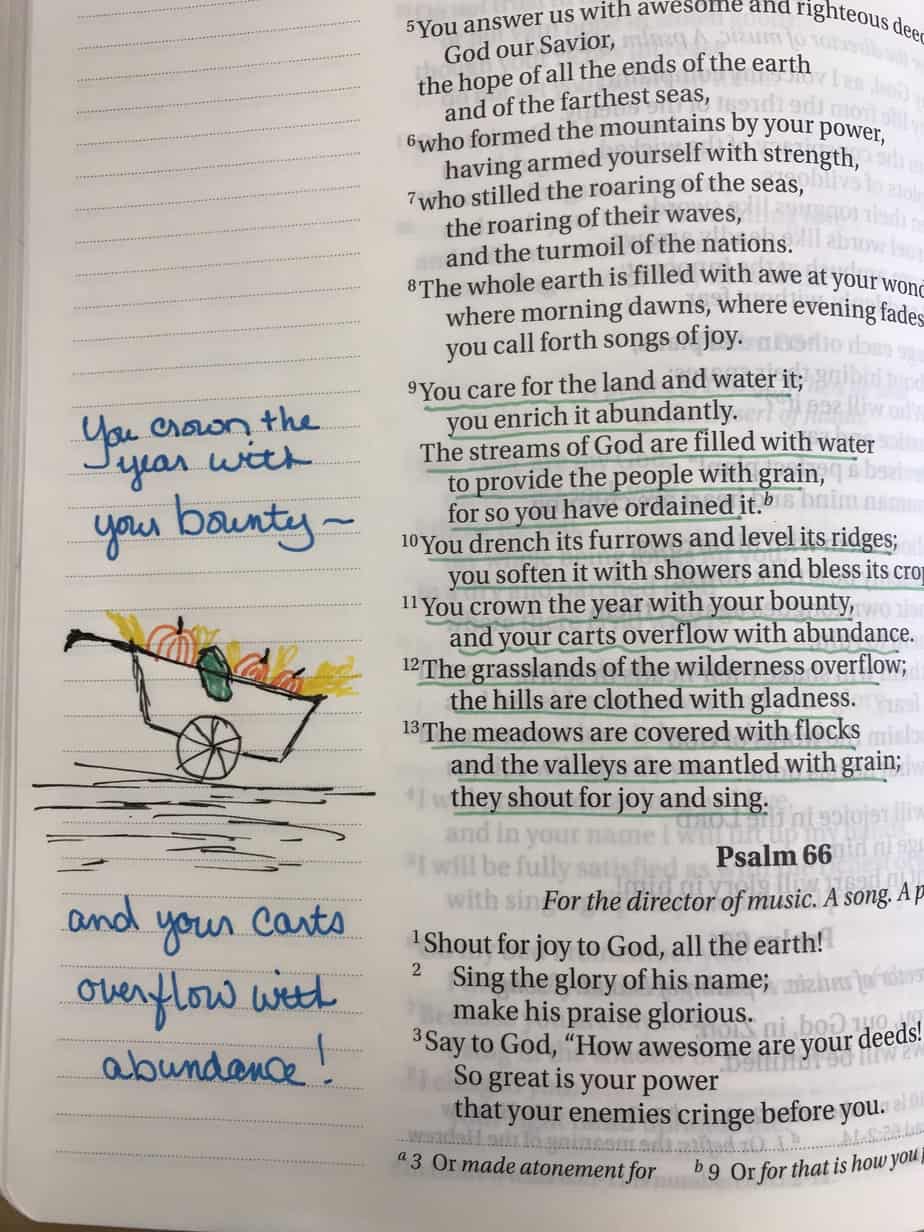 You crown the
year with
your bounty ~
and your carts
overflow with
abundance!
5You answer us with awesome and righteous
God our Savior,
the hope of all the ends of the earth
and of the farthest seas,
6who formed the mountains by your power,
having armed yourself with strength,
7who stilled the roaring of the seas,
the roaring of their waves,
and the turmoil of the nations.
8The whole earth is filled with awe at your
where morning dawns, where evening fades
you call forth songs of joy.
9You care for the land and water it;
you enrich it abundantly.
The streams of God are filled with water
to provide the people with grain,
for so you have ordained it.b
10You drench its furrows and level its ridges;
you soften it with showers and bless its
11You crown the year with your bounty,
and your carts overflow with abundance.
12The grasslands of the wilderness overflow;
the hills are clothed with gladness.
13The meadows are covered with flocks
and the valleys are mantled with grain;
they shout for joy and sing.
Psalm 66
For the director of music. A song. A
1Shout for joy to God, all the earth!
2 Sing the glory of his name;
make his praise glorious.
3Say to God, “How awesome are your deeds!
So great is your power
that your enemies cringe before you.
a 3 Or made atonement for b 9 Or for that is how you